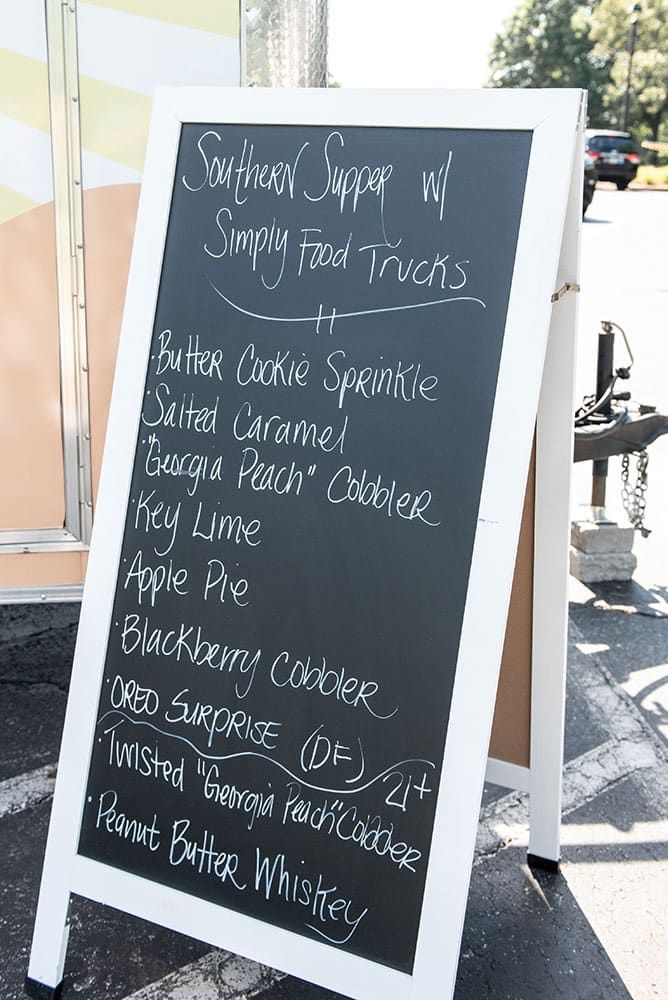 Southern Supper w/
Simply Food Trucks
· Butter Cookie Sprinkle
· Salted Caramel
· "Georgia Peach" Cobbler
· Key Lime
· Apple Pie
· Blackberry Cobbler
· OREO SURPRISE (DF)
21+
· Twisted "Georgia Peach" Cobbler
· Peanut Butter Whiskey